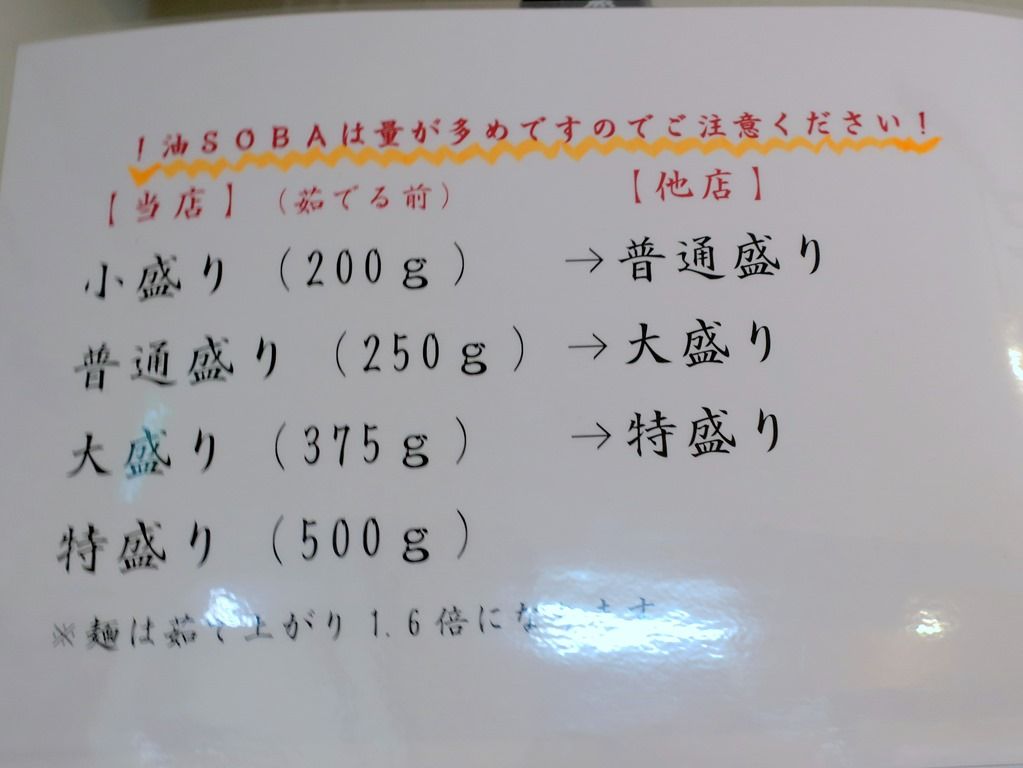 ！油ＳＯＢＡは量が多めですのでご注意ください！
【当店】（茹でる前） 【他店】
小盛り（200ｇ） →普通盛り
普通盛り（250ｇ）→大盛り
大盛り（375ｇ） →特盛り
特盛り（500ｇ）
※麺は茹で上がり1.6倍にな ます